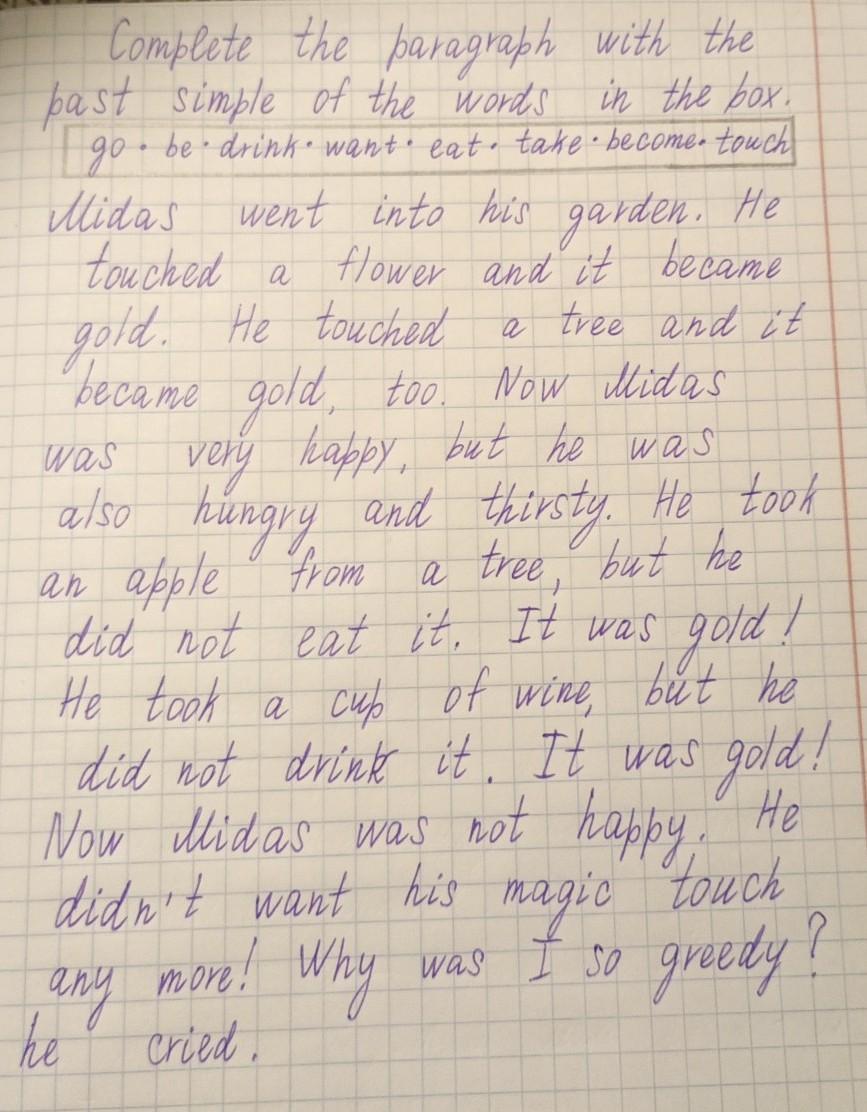 Complete the paragraph with the
past simple of the words in the box.
go · be · drink · want · eat · take · become · touch
Midas went into his garden. He
touched a flower and it became
gold. He touched a tree and it
became gold, too. Now Midas
was very happy, but he was
also hungry and thirsty. He took
an apple from a tree, but he
did not eat it. It was gold!
He took a cup of wine, but he
did not drink it. It was gold!
Now Midas was not happy. He
didn't want his magic touch
any more! Why was I so greedy?
he cried.